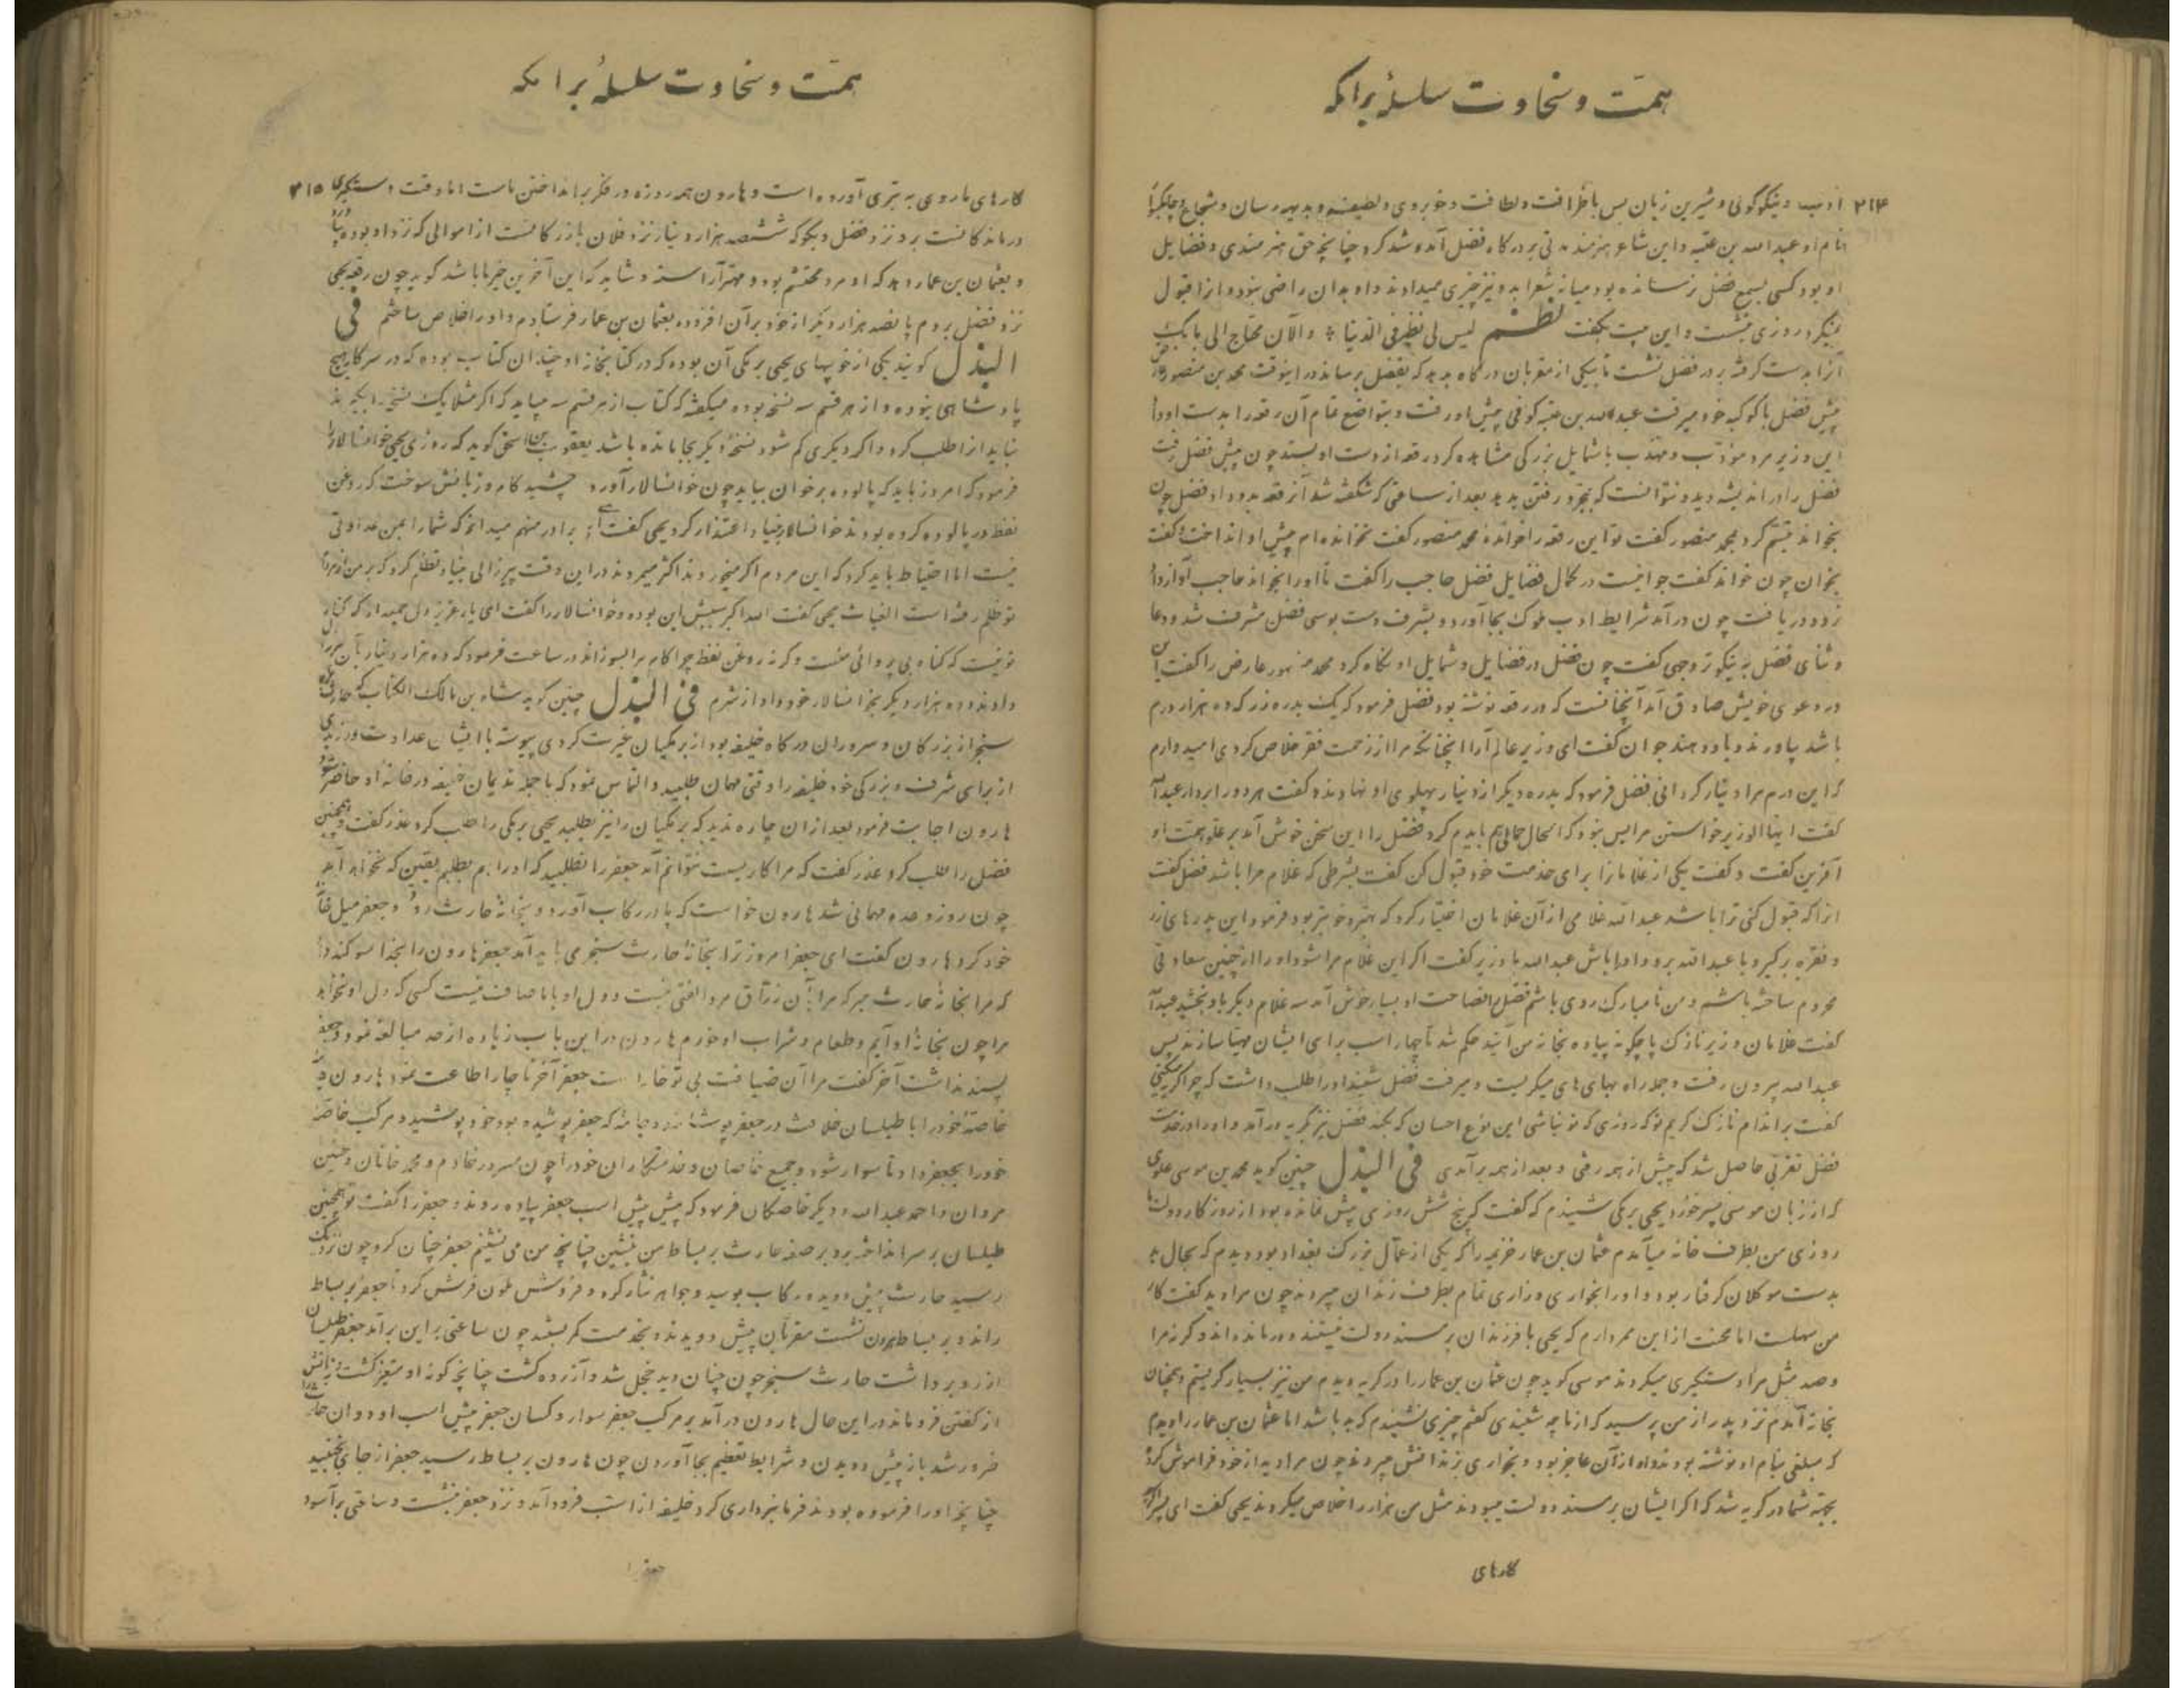 همّت و سخاوت سلسلهٔ برامکه
۲۱۴
ادیب و نیکوگوئی و شیرین زبان بس باظرافت و لطافت و خوبروی و لطیفه و بدیهه رسان و شجاع
نام او عبد الله بن عتبه و این شاعر هنرمند مدتی بر درگاه فضل آمد و شد کرد چنانچه حق هنرمندی و فضایل
او بود کسی بسمع فضل نرسانده بود میانه شعرا بدو نیز چیزی میدادند و او بدان راضی نبود و از قبول
روزی بنشست و این بیت بگفت نظم لیس لی نظیر فی الدنیا و الآن محتاج الی
آنرا بدست گرفته بر در فضل نشست تا یکی از مقربان درگاه بدید که بفضل برساند در اینوقت محمد بن منصور
پیش فضل با کوکبه خود میرفت عبد الله بن عتبه کوفی پیش او رفت و بتواضع تمام آن رقعه را بدست او داد
این وزیر مرد مؤدّب و مهذّب با شمایل بزرگی مشاهده کرد رقعه از دست او بستد چون پیش فضل رفت
فضل را در اندیشه دید و نتوانست که بدید بعد از ساعتی که شگفته شد آنرقعه بدو داد فضل چون
بخواند تبسّم کرد محمد منصور گفت تو این رقعه را خواندهٔ محمد منصور گفت نخوانده‌ام پیش او انداخت و گفت
بخوان چون خواند گفت جوانیست در کمال فضایل فضل حاجب را گفت تا او را بخواند حاجب آواز داد
زود دریافت چون درآمد شرایط ادب ملوک بجا آورد و بشرف دست بوسی فضل مشرف شد و دعا
و ثنای فضل به نیکوتر وجهی گفت چون فضل در فضایل و شمایل او نگاه کرد محمد منصور عارض را گفت این
در دعوی خویش صادق آمد آنچنانست که در رقعه نوشته بود فضل فرمود که یک بدره زر که ده هزار درم
باشد بیاورند و بدو دهند جوان گفت ای وزیر عالم آرا اینچنانکه مرا از زحمت فقر خلاص کردی امید دارم
که این درم مرا دینار گردانی فضل فرمود که بدره دیگر از دینار پهلوی او نهادند و گفت هر دو را بردار عبد الله
گفت ایها الوزیر خواستن مرا بس نبود که الحال حمالی هم بایدم کرد فضل را این سخن خوش آمد بر علو همّت او
آفرین گفت و گفت یکی از غلامانرا برای خدمت خود قبول کن گفت بشرطی که غلام مرا باشد فضل گفت
هرا که قبول کنی ترا باشد عبد الله غلامی از آن غلامان اختیار کرد که بهتر و خوبتر بود فرمود این بدرهای زر
و نقره برگیر و با عبد الله برو و او را باش عبد الله با وزیر گفت اگر این غلام مرا شود او را از چنین سعادتی
محروم ساخته باشم و من نامبارک روی باشم فضل را فصاحت او بسیار خوش آمد سه غلام دیگر باو بخشید عبد الله
گفت غلامان وزیر نازک پا چگونه پیاده بخانه من آیند حکم شد تا چهار اسب برای ایشان مهیا سازند پس
عبد الله بیرون رفت و جمله راه بهای های میگریست و میرفت فضل شنید او را طلب داشت که چرا گریه میکنی
گفت بر اندام نازک گریم که روزی که تو نباشی این نوع احسان که بکند فضل نیز بگریه درآمد و او را در خدمت
فضل تقربی حاصل شد که پیش از همه رفتی و بعد از همه برآمدی فی البذل چنین گوید محمد بن موسی علوی
که از زبان موسی پسر خورد یحیی برمکی شنیدم که گفت که پنج شش روزی پیش نمانده بود از روزگار دولت ما
روزی من بطرف خانه میآمدم عثمان بن عمار خزیمه را که یکی از عمّال بزرگ بغداد بود دیدم که بحال بد
بدست موکلان گرفتار بود و او را بخواری و زاری تمام بطرف زندان میبردند چون مرا دید گفت کار
من سهلست اما محنت از این ممر دارم که یحیی با فرزندان بر مسند دولت نیستند و درمانده‌اند وگرنه مرا
و صد مثل مرا دستگیری میکردند موسی گوید چون عثمان بن عمار را در گریه دیدم من نیز بسیار گریستم و همچنان
بخانه آمدم نزد پدر از من پرسید که از ما چه شنیدی گفتم چیزی نشنیدم که بد باشد اما عثمان بن عمار را دیدم
که مبلغی بنام او نوشته بودند و او از آن عاجز بود و بخواری بزندانش میبردند چون مرا دید از خود فراموش کرد
بجهة شما در گریه شد که اگر ایشان بر مسند دولت میبودند مثل من هزار را خلاص میکردند یحیی گفت ای پسر
کارهای
همّت و سخاوت سلسلهٔ برامکه
۲۱۵
کارهای ما روی به بتری آورده است و هارون همه روزه در فکر برانداختن ماست اما وقت دستگیری
درماندکانست برو نزد فضل و بگو که ششصد هزار دینار نزد فلان بازرگانست از اموالی که نزد او بوده
و بعثمان بن عمار دهد که او مرد محتشم بود و مهترآراسته و شاید که این آخرین خیر ما باشد گوید چون رقعه یحیی
نزد فضل بردم پانصد هزار دیگر از خود بر آن افزوده بعثمان بن عمار فرستادم و او را خلاص ساختم فی
البذل گویند یکی از خوبیهای یحیی برمکی آن بوده که در کتابخانه او چندان کتاب بوده که در سرکار هیچ
پادشاهی نبوده و از هر قسم سه نسخه بوده میگفته که کتاب از هر قسم سه میباید که اگر مثلا یک نسخه را یکی بد
نباید از او طلب کرد و اگر دیگری گم شود نسخهٔ دیگر بجا مانده باشد یعقوب بن اسحق گوید که روزی یحیی خوانسالار را
فرمود که امروز باید که پالوده بر خوان بیاید چون خوانسالار آورد چشید کام و زبانش سوخت که روغن
نفط در پالوده کرده بودند خوانسالار بنیاد اعتذار کرد یحیی گفت ای برادر منهم میدانم که شما را بمن عداوتی
نیست اما احتیاط باید کرد که این مردم اگر میخوردند اکثر میمردند در این وقت پیرزالی بنیاد تظلّم کرد که بر من از
تو ظلم رفته است الغیاث یحیی گفت الله اکبر سببش این بوده و خوانسالار را گفت ای یار عزیز دل جمیدار که گناه
تو نیست که گناه بی پروائی منست وگرنه روغن نفط چرا کام مرا بسوزاند در ساعت فرمود که ده هزار دینار بآن پیر زن
دادند و ده هزار دیگر بخوانسالار خود داد از شرم فی البذل چنین گوید شاه بن مالک الکتاب که حارث
سنجر از بزرگان و سروران درگاه خلیفه بود از برمکیان غیرت کردی پیوسته با ایشان عداوت ورزیدی
از برای شرف و بزرگی خود خلیفه را وقتی مهمان طلبید و التماس نمود که با جمله ندیمان خلیفه در خانه او حاضر شود
هارون اجابت فرمود بعد از آن چاره ندید که برمکیان را نیز بطلبید یحیی برمکی را طلب کرد عذر گفت و همچنین
فضل را طلب کرد عذر گفت که مرا کاریست نتوانم آمد جعفر را بطلبید که او را هم بطلبم یقین که نخواهد آمد
چون روز وعده مهمانی شد هارون خواست که پا در رکاب آورد و بخانهٔ حارث رود و جعفر میل خانه
خود کرد هارون گفت ای جعفر امروز ترا بخانهٔ حارث سنجر می باید آمد جعفر هارون را بخدا سوگند داد
که مرا بخانهٔ حارث مبر که مرا بآن زرّاق مرد الفتی نیست و دل او با ما صاف نیست کسی که دل او نخواهد
مرا چون بخانه او آیم و طعام و شراب او خورم هارون در این باب زیاده از حد مبالغه نمود و جعفر
پسند نداشت آخر گفت مرا آن ضیافت بی تو خار است جعفر آخر ناچار اطاعت نمود هارون
خاصهٔ خود را با طیلسان خلافت در جعفر پوشانید و جامهٔ که جعفر پوشیده بود خود پوشید و مرکب خاصّه
خود را بجعفر داد تا سوار شود و جمیع خاصان و خدمتکاران خود را چون مسرور خادم و محمد خاقان و حسین
مروان و احمد عبد الله و دیگر خاصکان فرمود که پیش پیش اسب جعفر پیاده روند و جعفر را گفت تو همچنین
طیلسان بر سر انداخته برو بر صفه حارث بر بساط من بنشین چنانچه من می نشینم جعفر چنان کرد چون نزدیک
رسید حارث پیش دوید و رکاب بوسید و جواهر نثار کرد و فروش ملون فرش کرد تا جعفر بر بساط
راند و بر بساط هارون نشست مقربان پیش دویدند و بخدمت کمر بستند چون ساعتی بر این برآمد جعفر طیلسان
از رو برداشت حارث سنجر چون چنان دید خجل شد و آزرده گشت چنانچه گونه او متغیر گشت و زبانش
از گفتن فرو ماند در این حال هارون درآمد بر مرکب جعفر سوار و کسان جعفر پیش اسب او دوان حارث را
ضرور شد باز پیش دویدن و شرایط تعظیم بجا آوردن چون هارون بر بساط رسید جعفر از جای نجنبید
چنانچه او را فرموده بودند فرمانبرداری کرد خلیفه از اسب فرود آمد و نزد جعفر بنشست و ساعتی برآسود
جعفر را